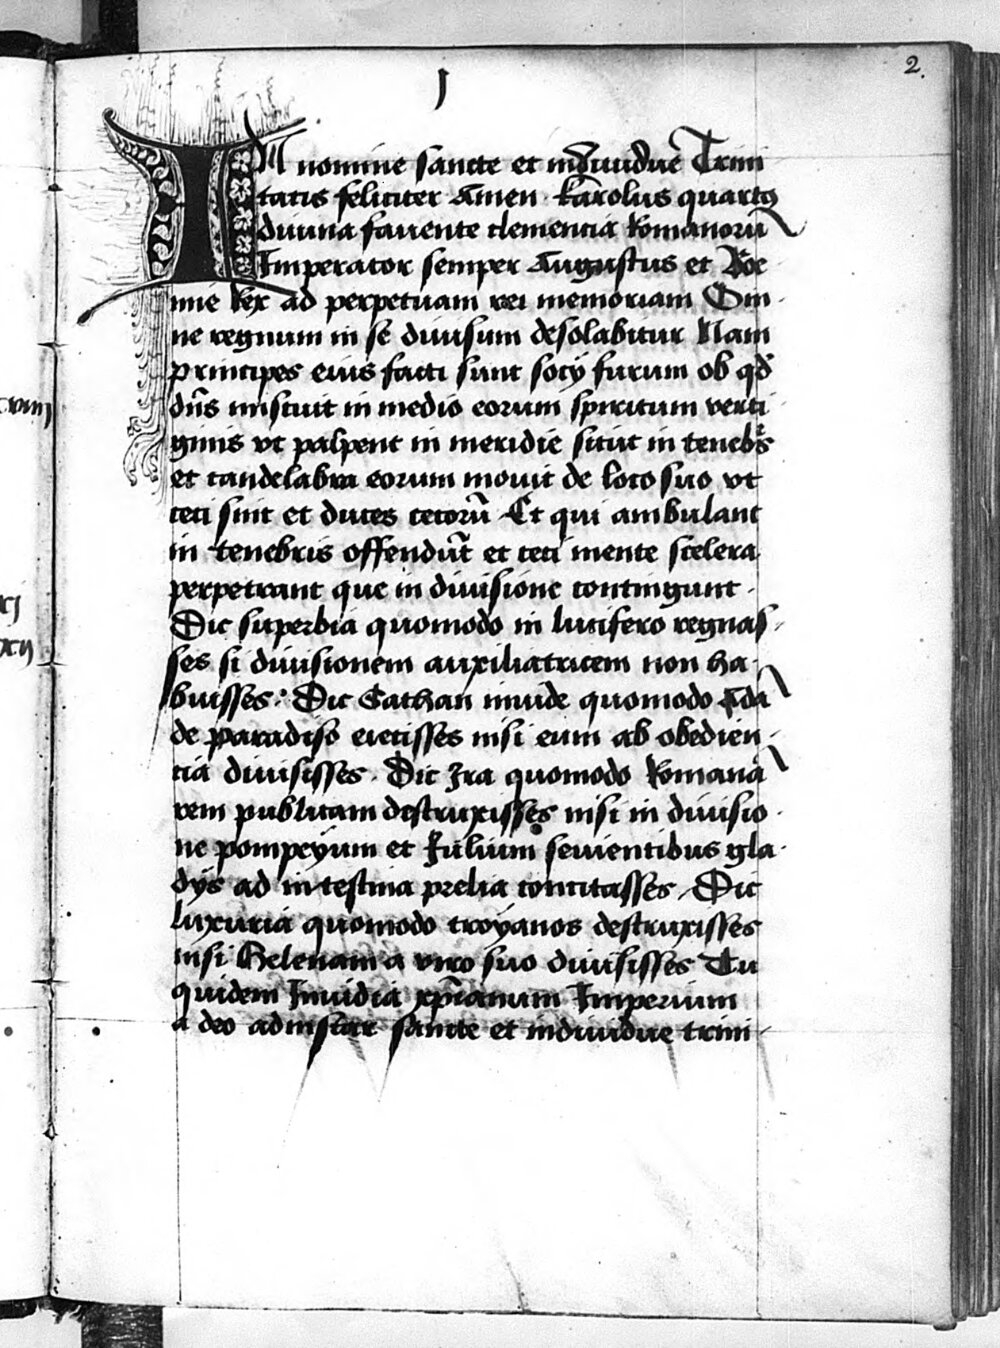 2.
J
IN nomine sancte et indiuidue Trini
tatis feliciter Amen. Karolus quartus
diuina fauente clemencia Romanorū
Imperator semper Augustus et Boe
mie Rex ad perpetuam rei memoriam Om
ne regnum in se diuisum desolabitur Nam
principes eius facti sunt socÿ furum ob qd̄
dn̄s miscuit in medio eorum spiritum verti
ginis vt palpent in meridie sicut in tenebr̄s
et candelabra eorum mouit de loco suo vt
ceci sint et duces cecorū Et qui ambulant
in tenebris offendūt et ceci mente scelera
perpetrant que in diuisione contingunt.
Dic superbia quomodo in lucifero regnas
ses si diuisionem auxiliatricem non ha
buisses: Dic Sathan inuide quomodo Adā
de paradiso eiecisses nisi eum ab obedien
cia diuisisses. Dic Ira quomodo Romanā
rem publicam destruxisses nisi in diuisio
ne pompeyum et Julium seuientibus gla
dÿs ad intestina prelia concitasses. Dic
luxuria quomodo troyanos destruxisses
nisi Helenam a viro suo diuisisses Tu
quidem Inuidia xp̄ianum Imperium
a deo ad instar sancte et indiuidue trini
xviij
xj
xij